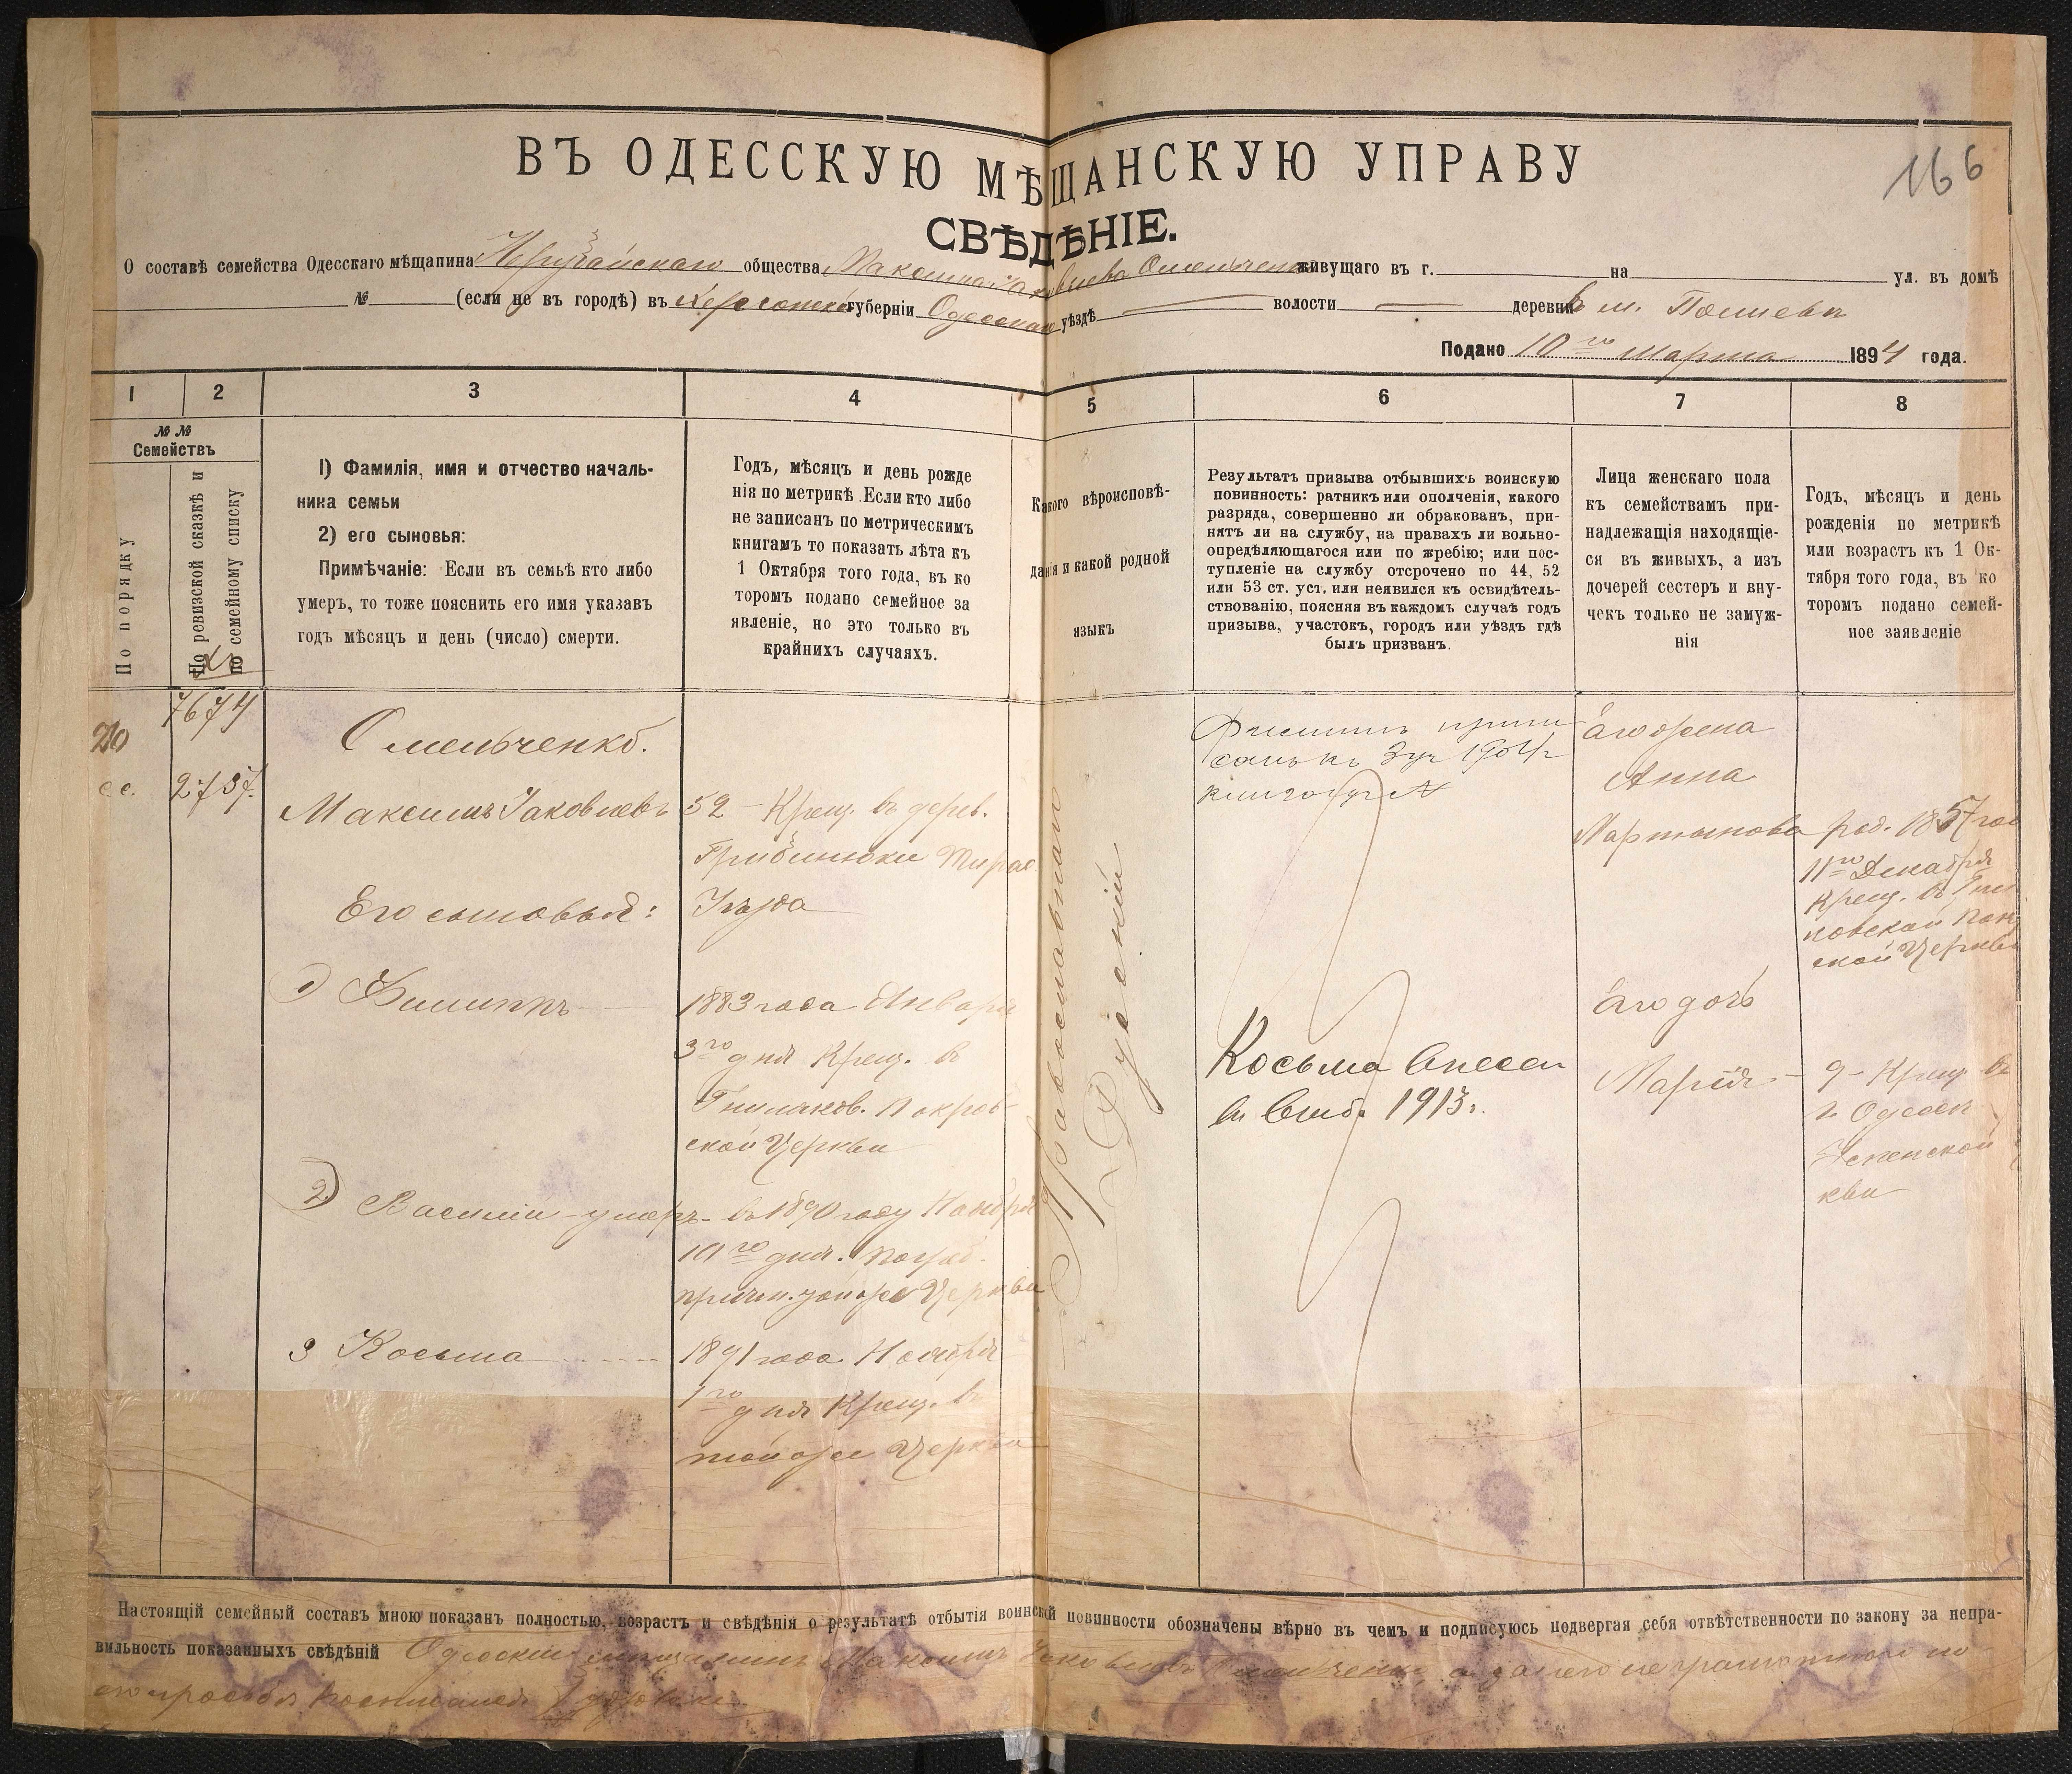 166
ВЪ ОДЕССКУЮ МѢЩАНСКУЮ УПРАВУ
СВѢДѢНІЕ.
О составѣ семейства Одесскаго мѣщанина общества Максима Яковлева Омельченко живущаго въ г. на ул. въ домѣ
№ (если не въ городѣ) въ Херсонской губерніи Одесскаго уѣздѣ волости деревни в м.
Подано 10го Марта 1894 года.
1 2 3 4 5 6 7 8
№ № Семействъ
По порядку
По ревизской сказкѣ и по семейному списку
I) Фамилія, имя и отчество началь-
ника семьи
2) его сыновья:
Примѣчаніе: Если въ семьѣ кто либо
умеръ, то тоже пояснить его имя указавъ
годъ мѣсяцъ и день (число) смерти.
Годъ, мѣсяцъ и день рожде
нія по метрикѣ. Если кто либо
не записанъ по метрическимъ
книгамъ то показать лѣта къ
1 Октября того года, въ ко
торомъ подано семейное за
явленіе, но это только въ
крайнихъ случаяхъ.
Какого вѣроисповѣ-
данія и какой родной
языкъ
Результатъ призыва отбывшихъ воинскую
повинность: ратникъ или ополченія, какого
разряда, совершенно ли обракованъ, при-
нятъ ли на службу, на правахъ ли вольно-
опредѣляющагося или по жребію; или пос-
тупленіе на службу отсрочено по 44, 52
или 53 ст. уст. или неявился къ освидѣтель-
ствованію, поясняя въ каждомъ случаѣ годъ
призыва, участокъ, городъ или уѣздъ гдѣ
былъ призванъ.
Лица женскаго пола
къ семействамъ при-
надлежащія находящіе-
ся въ живыхъ, а изъ
дочерей сестеръ и вну-
чекъ только не замуж-
нія
Годъ, мѣсяцъ и день
рожденія по метрикѣ
или возрастъ къ 1 Ок-
тября того года, въ ко
торомъ подано семей-
ное заявленіе
7674
2737.
Омельченко.
Максимъ Яковлевъ
Его сыновья:
1) Филиппъ
2) Василій - умеръ -
3 Косьма
52 - Крещ. въ дерев.
Уѣзда
1883 года Января
3го дня Крещ. в
Гниляков. Покров-
ской Церкви
в 1890 году Ноября
10го дня. погреб.
Церкви
1891 года Ноября
1го дня Крещ. в
той же Церкви
Православнаго
Русскій
Филиппъ припи-
санъ къ 3 уч 1904 г
Косьма внесен
1913 г.
Его жена
Анна
Мартынова
Его дочь
Марія -
род. 1857 год
11го Декабря
Крещ. в Гни
ляковской Пок
ской Церкви
9 - Крещ в
г. Одесск
Успенской
кви
Настоящій семейный составъ мною показанъ полностью, возрастъ и свѣдѣнія о результатѣ отбытія воинской повинности обозначены вѣрно въ чемъ и подписуюсь подвергая себя отвѣтственности по закону за непра-
вильность показанныхъ свѣдѣній Одесскій мѣщанинъ Максимъ Яковлевъ Омельченко, а за него неграмотнаго по
его просьбѣ